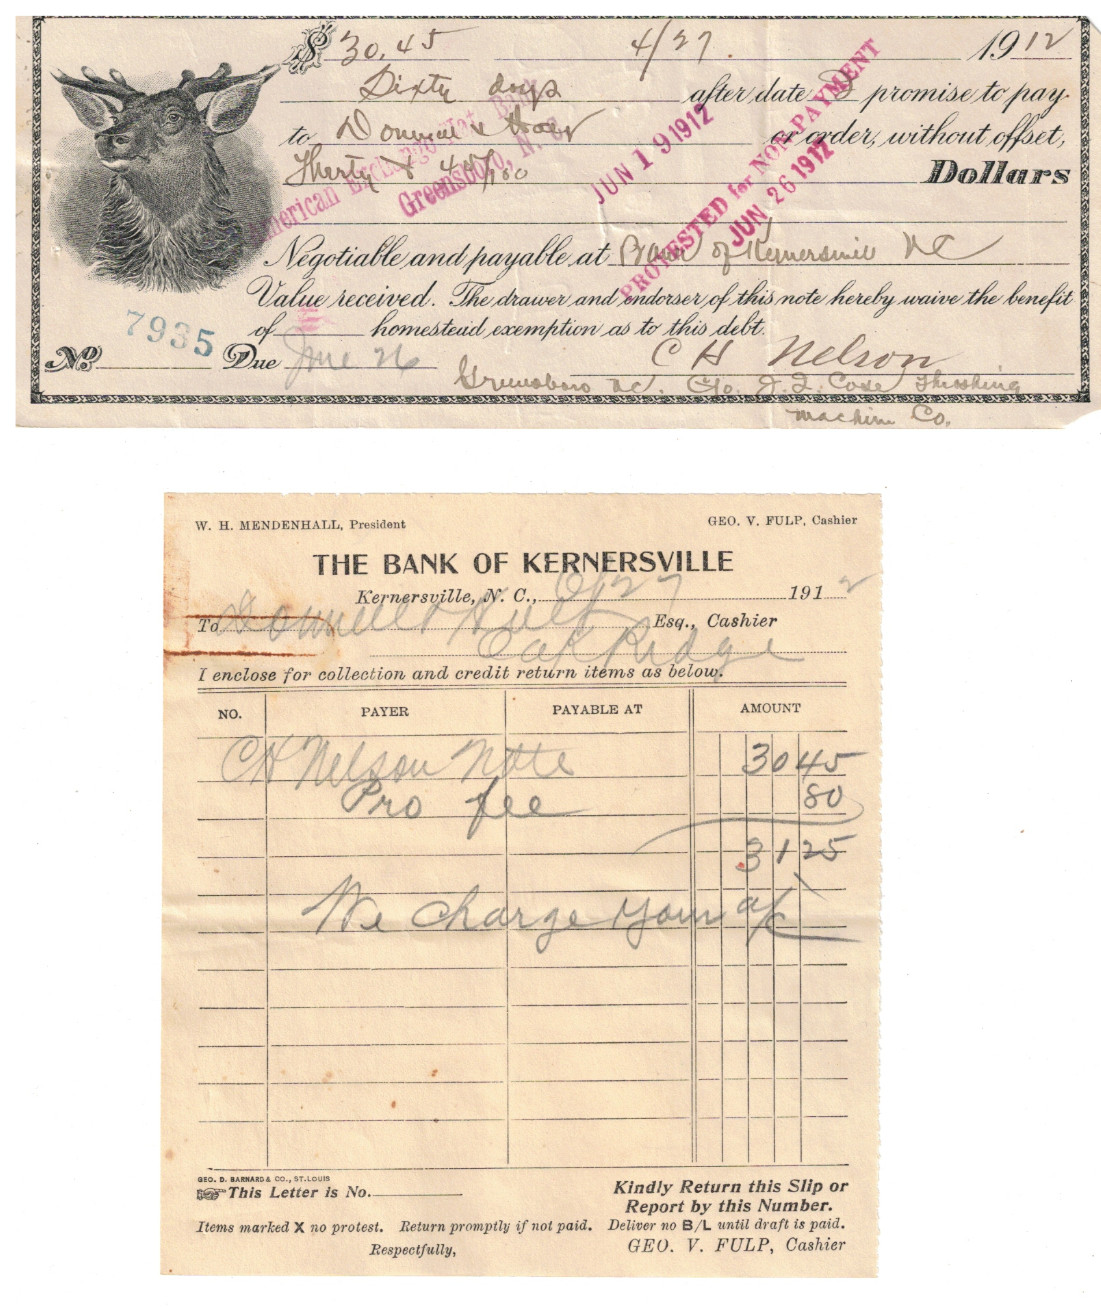 $ 30.45 4/27. 1912
Sixty days after date I promise to pay
to Donnell & or order, without offset,
Thirty & 45/100 Dollars
American Exchange Nat. Bank
Greensboro, N. C.
JUN 19 1912
PROTESTED for NON-PAYMENT
JUN 26 1912
Negotiable and payable at Bank of Kernersville NC
Value received. The drawer and endorser of this note hereby waive the benefit
of homestead exemption as to this debt.
No. 7935 Due June 26 C H Nelson
Greensboro NC. C/o. J. I. Case Threshing
Machine Co.
W. H. MENDENHALL, President GEO. V. FULP, Cashier
THE BANK OF KERNERSVILLE
Kernersville, N. C., 6/27 1912
To Donnell & Esq., Cashier
Oak Ridge
I enclose for collection and credit return items as below.
NO. PAYER PAYABLE AT AMOUNT
CH Nelson Note 30 45
Pro fee 80
31 25
We charge your a/c
GEO. D. BARNARD & CO., ST. LOUIS
This Letter is No.
Kindly Return this Slip or
Report by this Number.
Items marked X no protest. Return promptly if not paid. Deliver no B/L until draft is paid.
Respectfully, GEO. V. FULP, Cashier